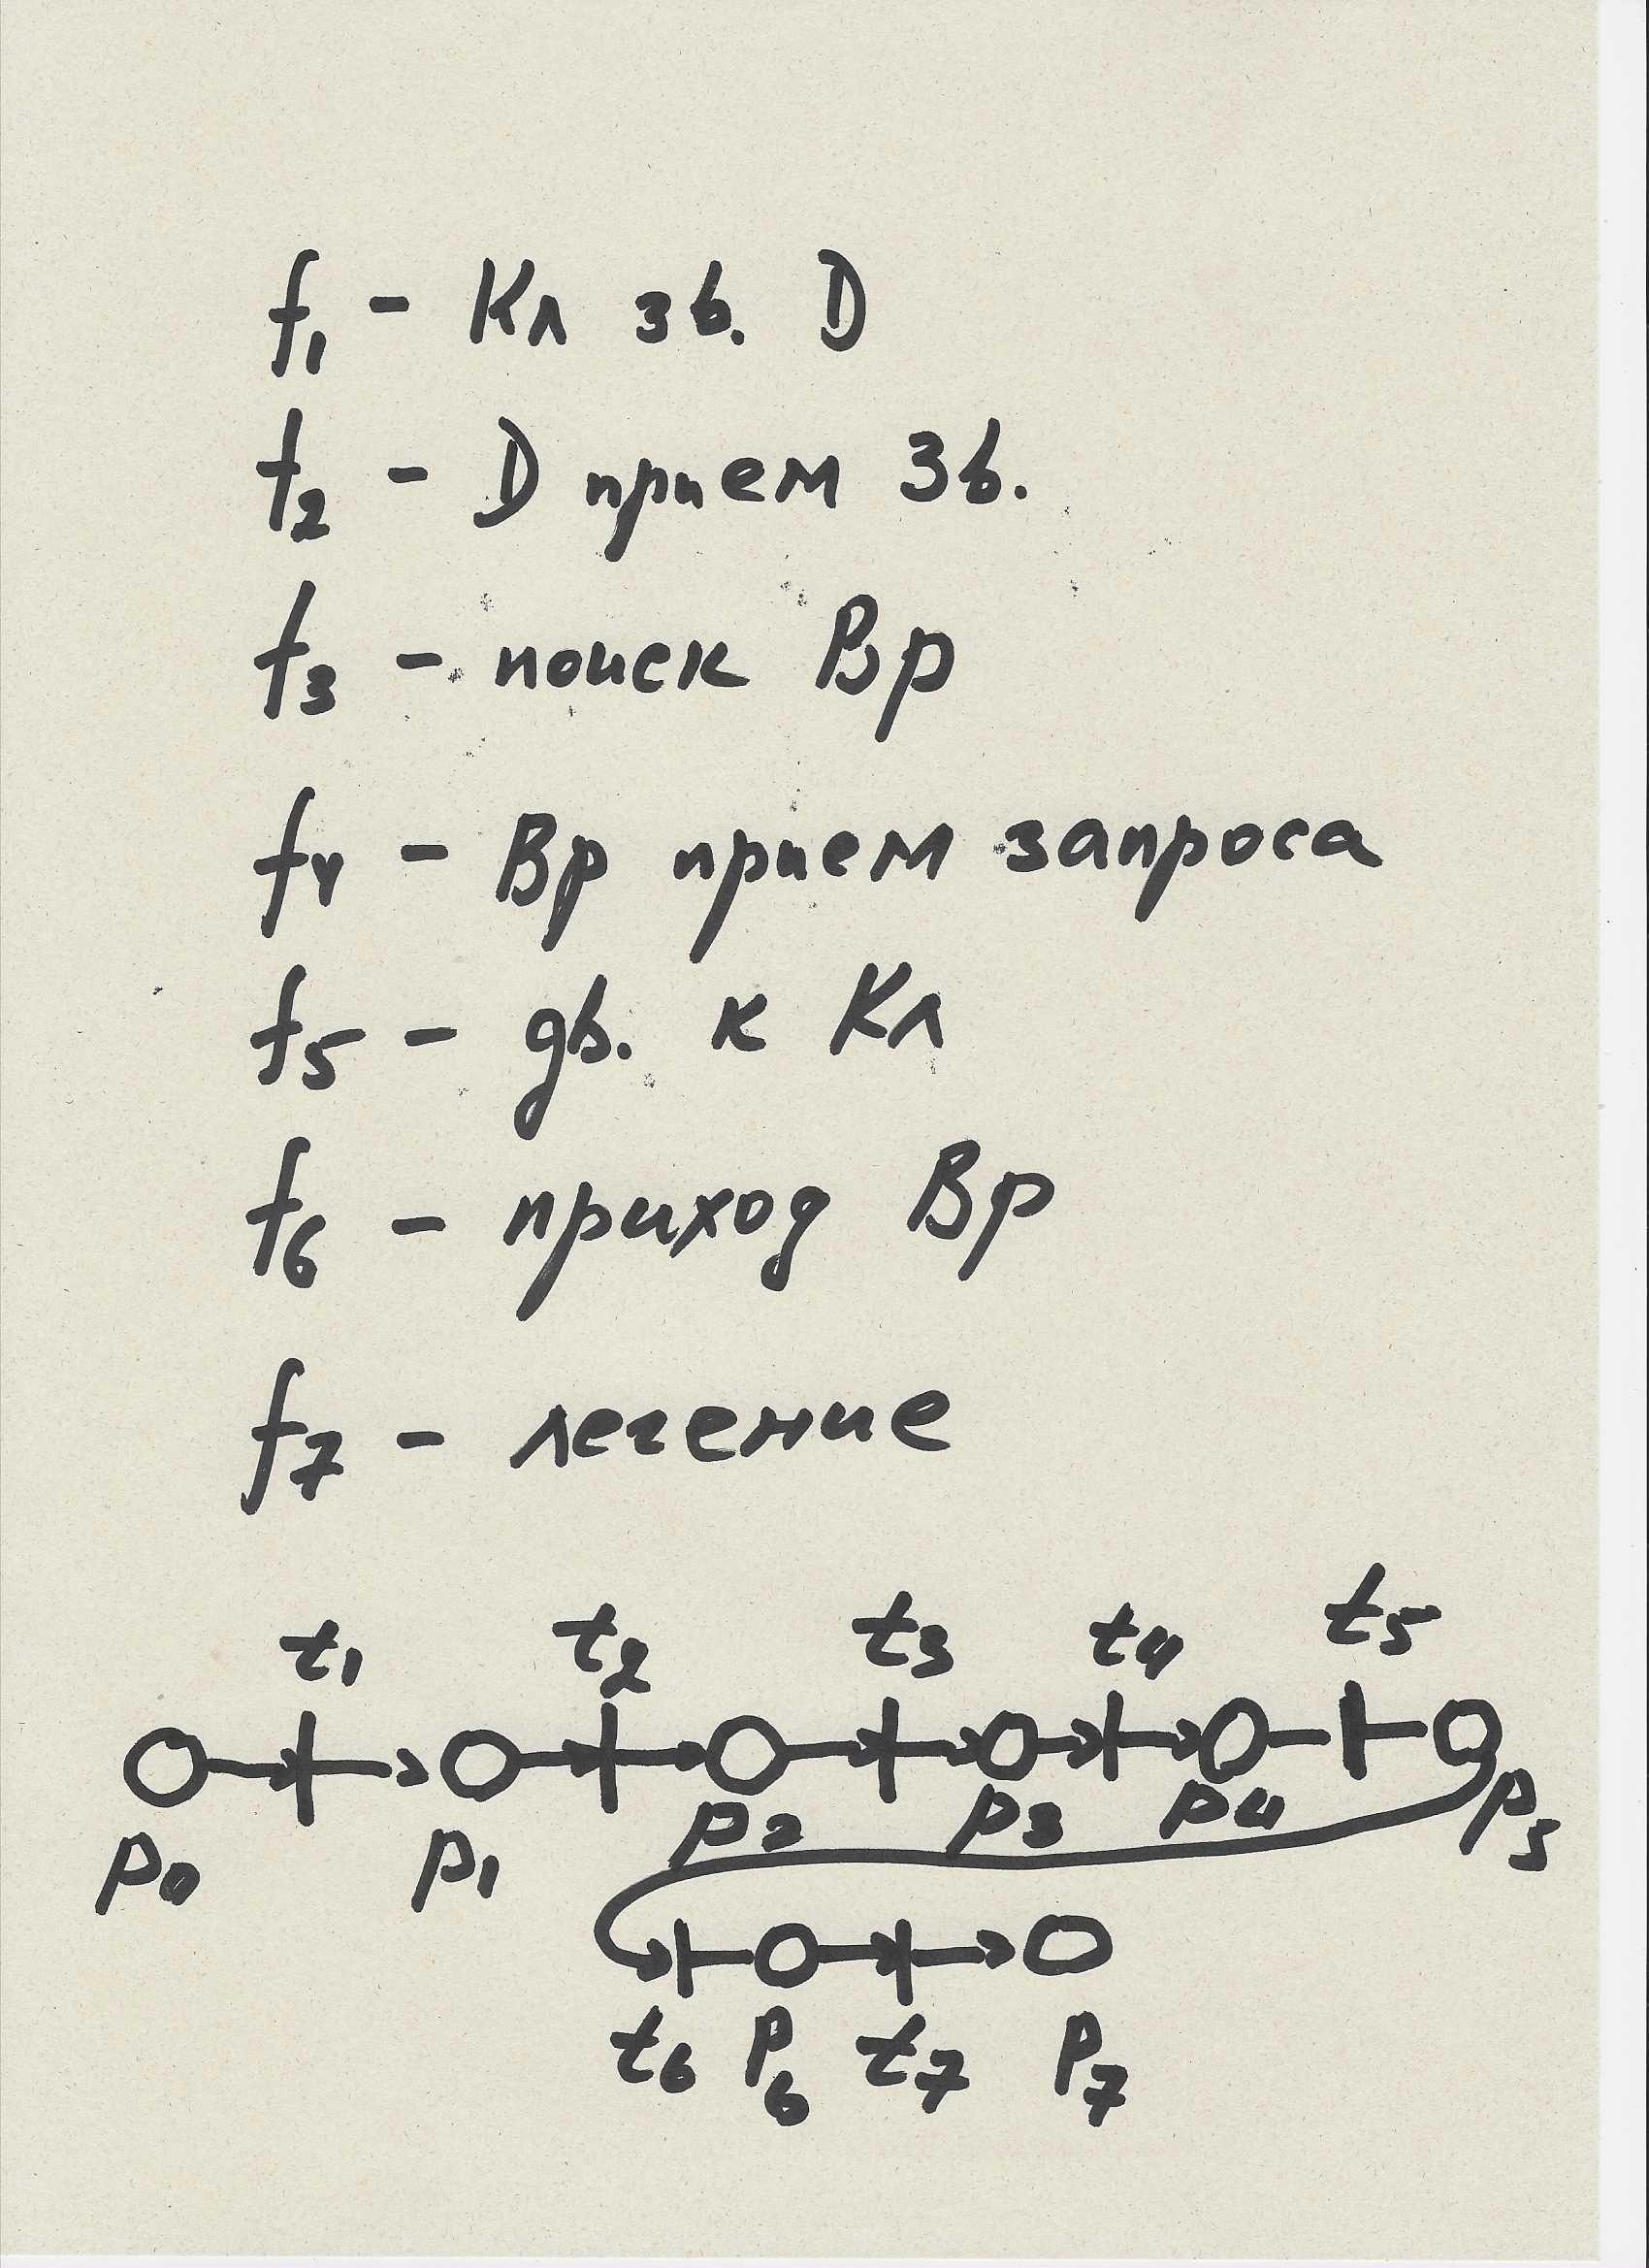 f1 - Кл зв. D
f2 - D прием Зв.
f3 - поиск Вр
f4 - Вр прием запроса
f5 - дв. к Кл
f6 - приход Вр
f7 - лечение
t1 t2 t3 t4 t5
p0 p1 p2 p3 p4 p5
t6 p6 t7 p7